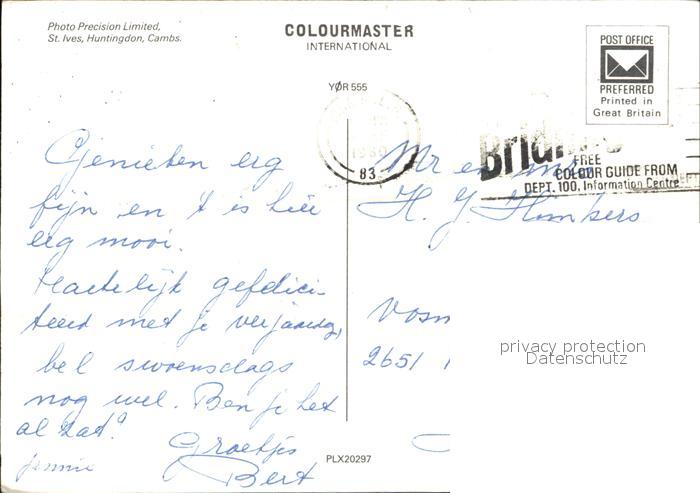 Photo Precision Limited,
St. Ives, Huntingdon, Cambs.
COLOURMASTER
INTERNATIONAL
YØR 555
POST OFFICE
PREFERRED
Printed in
Great Britain
1980
83
FREE
COLOUR GUIDE FROM
DEPT. 100, Information Centre
Genieten erg
fijn en 't is hier
erg mooi.
Hartelijk gefelici-
teerd met je verjaardag,
bel swoensdags
nog wel. Ben je het
al zat?
Groetjes
Bert
Jennie
Mr en
H. J.
2651
privacy protection
Datenschutz
PLX20297